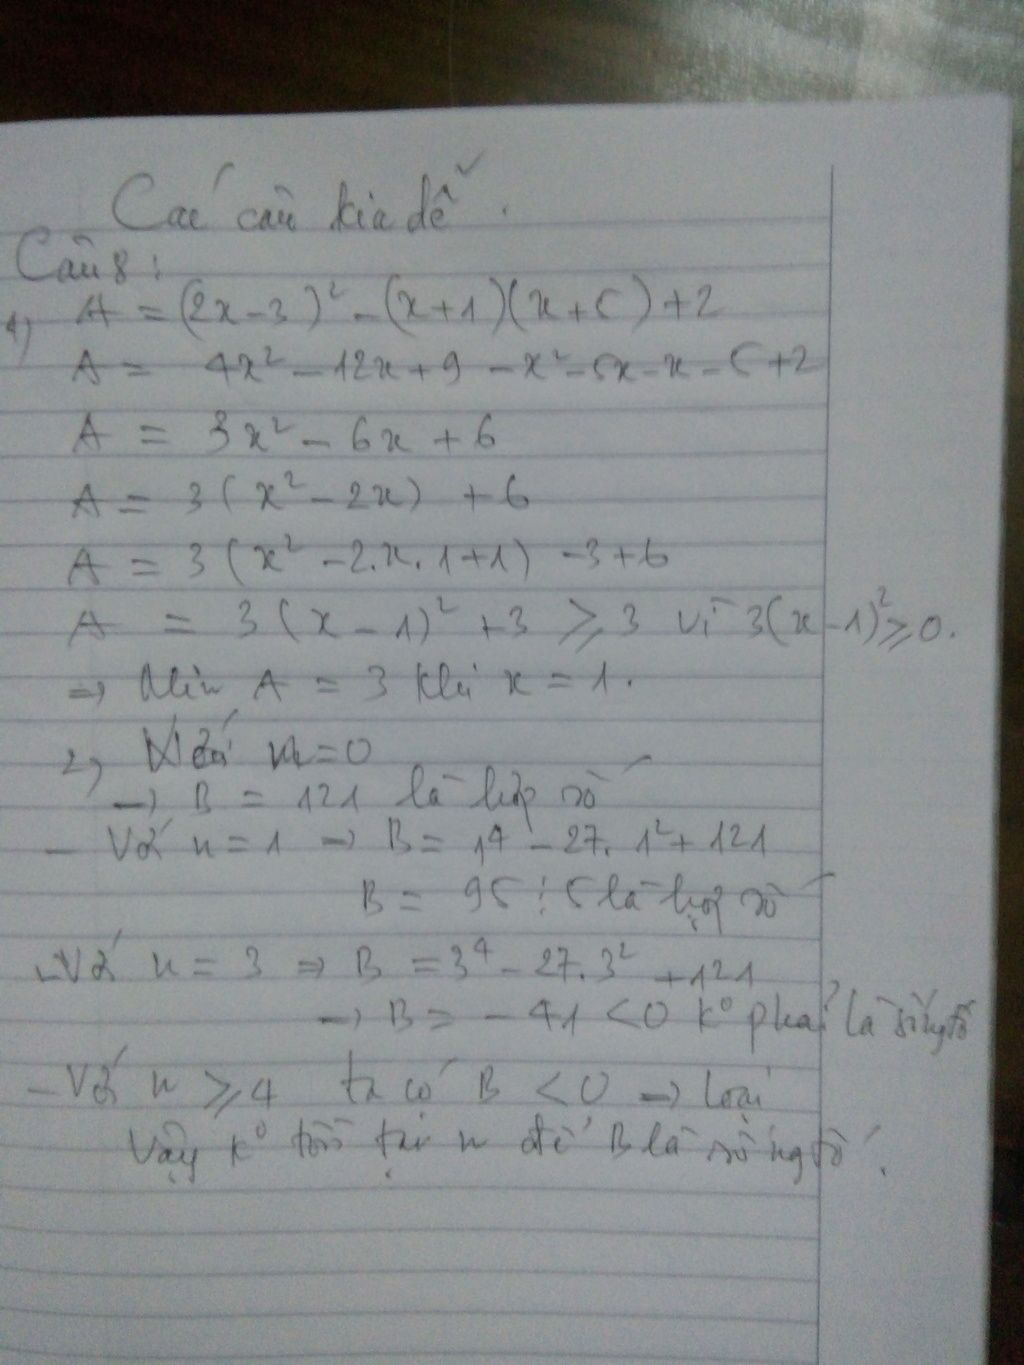 Các câu kia dễ.
Câu 8:
1) A = (2x-3)² - (x+1)(x+5) + 2
A = 4x² - 12x + 9 - x² - 5x - x - 5 + 2
A = 3x² - 6x + 6
A = 3(x² - 2x) + 6
A = 3(x² - 2.x.1 + 1) - 3 + 6
A = 3(x - 1)² + 3 ≥ 3 vì 3(x-1)² ≥ 0.
⇒ Min A = 3 khi x = 1.
2) Với n = 0
→ B = 121 là hợp số
- Với n = 1 → B = 1⁴ - 27.1² + 121
B = 95 ⋮ 5 là hợp số
- Với n = 3 ⇒ B = 3⁴ - 27.3² + 121
→ B = - 41 < 0 k° phải là số ngtố
- Với n ≥ 4 ta có B < 0 → loại
Vậy k° tồn tại n để B là số ngtố.